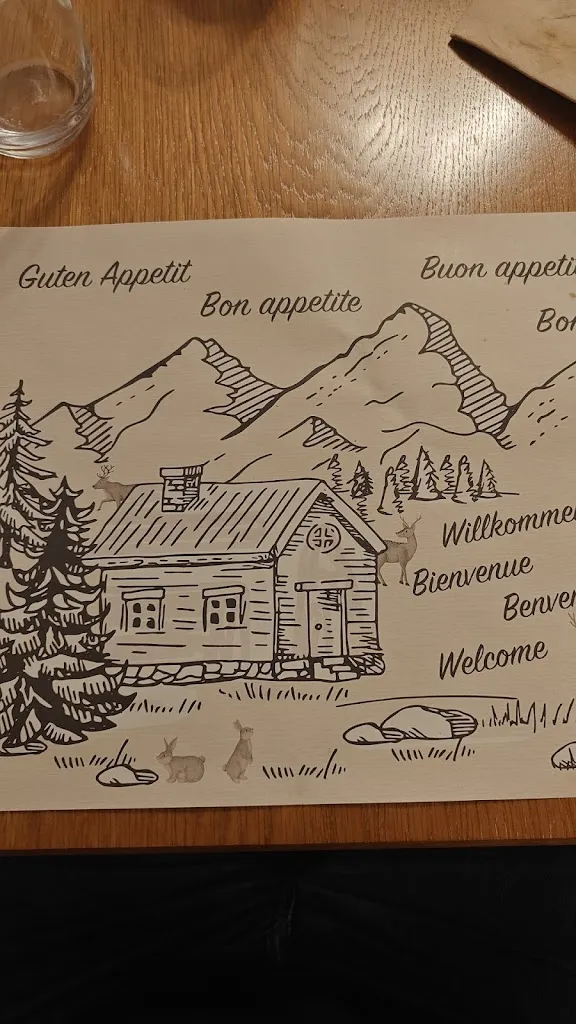 Guten Appetit
Bon appetite
Buon appetit
Bon
Willkommen
Bienvenue
Benven
Welcome